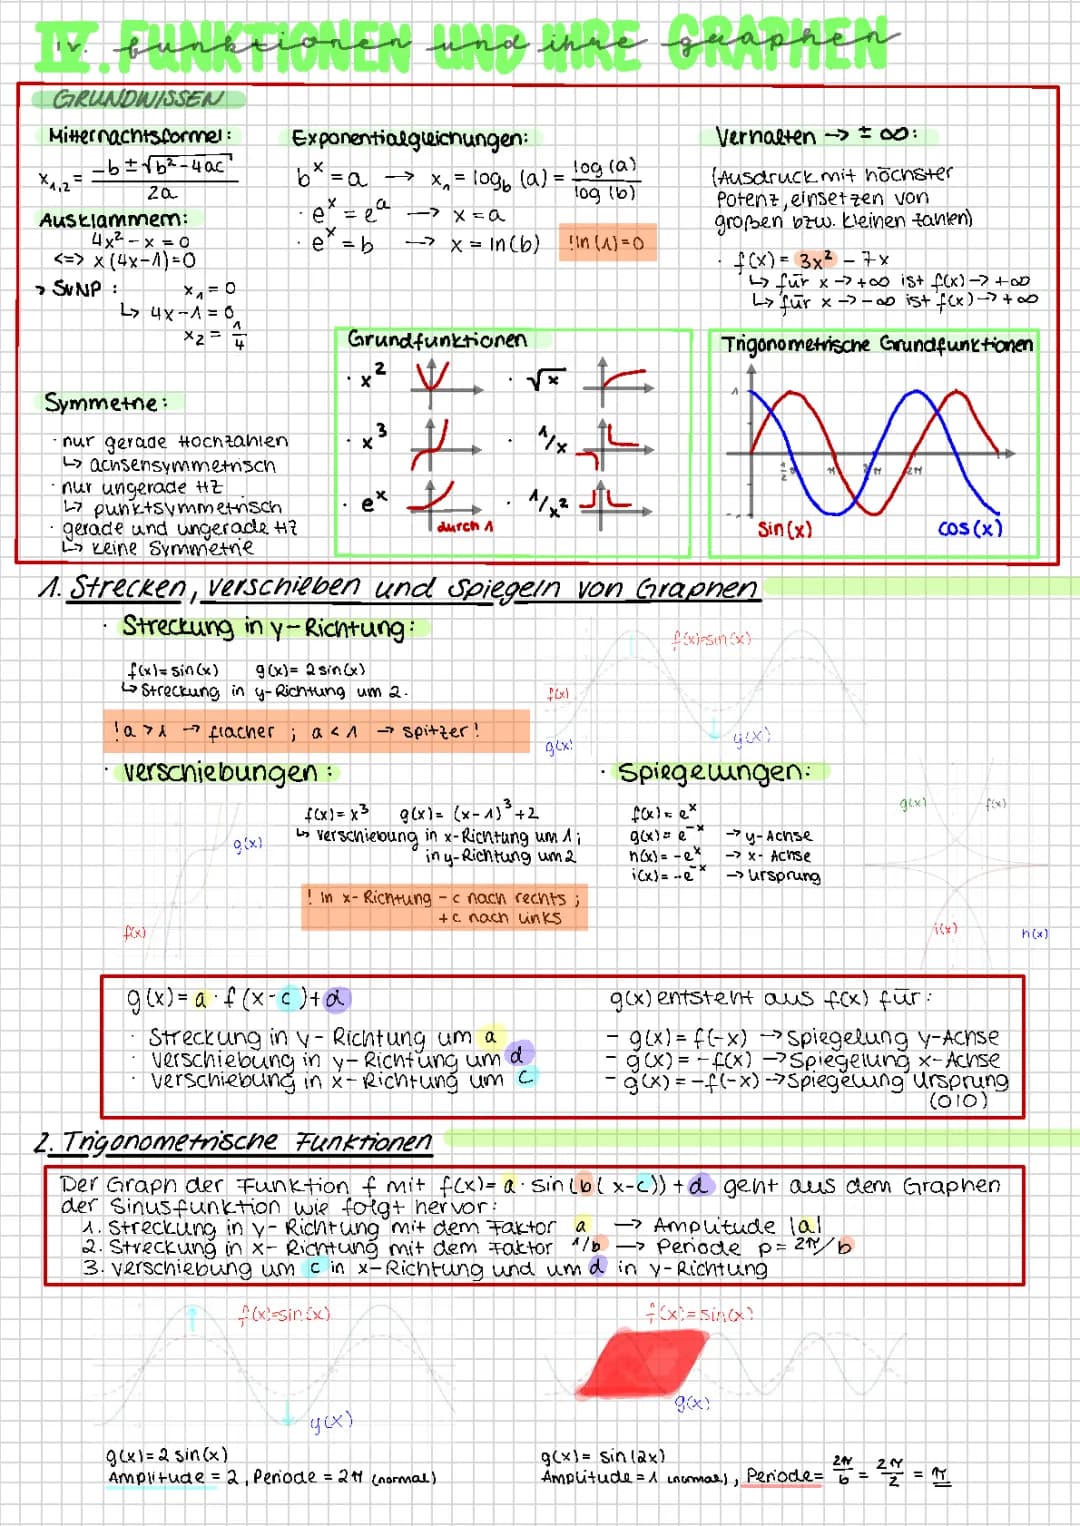 IV. FUNKTIONEN UND IHRE GRAPHEN
GRUNDWISSEN
Mitternachtsformel:
x₁,₂ = (-b ± √(b² - 4ac)) / 2a
Ausklammern:
4x² - x = 0
<=> x(4x-1)=0
→ SVNP : x₁ = 0
↳ 4x-1 = 0
x₂ = 1/4
Symmetrie:
· nur gerade Hochzahlen
↳ achsensymmetrisch
· nur ungerade HZ
↳ punktsymmetrisch
· gerade und ungerade HZ
↳ keine Symmetrie
Exponentialgleichungen:
bˣ = a → x₁ = log_b (a) = log(a) / log(b)
· eˣ = eᵃ → x = a
· eˣ = b → x = ln(b) !ln(1)=0
Verhalten → ± ∞:
(Ausdruck mit höchster
Potenz, einsetzen von
großen bzw. kleinen Zahlen)
· f(x) = 3x² - 7x
↳ für x → +∞ ist f(x) → +∞
↳ für x → -∞ ist f(x) → +∞
Grundfunktionen
· x² · √x
· x³ · 1/x
· eˣ durch 1 · 1/x²
Trigonometrische Grundfunktionen
1
π 2π
sin(x) cos(x)
1. Strecken, verschieben und Spiegeln von Graphen
· Streckung in y-Richtung:
f(x) = sin(x) g(x) = 2 sin(x)
↳ Streckung in y-Richtung um 2.
!a > 1 → flacher ; a < 1 → spitzer!
f(x)=sin(x)
f(x)
g(x)
g(x)
· Verschiebungen:
f(x) = x³ g(x) = (x-1)³+2
↳ Verschiebung in x-Richtung um 1;
in y-Richtung um 2
! In x-Richtung - c nach rechts ;
+c nach links
g(x)
f(x)
· Spiegelungen:
f(x) = eˣ
g(x) = e⁻ˣ → y-Achse
h(x) = -eˣ → x-Achse
i(x) = -e⁻ˣ → Ursprung
g(x) f(x)
i(x) h(x)
g(x) = a · f(x-c)+d
· Streckung in y-Richtung um a
· Verschiebung in y-Richtung um d
· Verschiebung in x-Richtung um c
g(x) entsteht aus f(x) für:
- g(x) = f(-x) → Spiegelung y-Achse
- g(x) = -f(x) → Spiegelung x-Achse
- g(x) = -f(-x) → Spiegelung Ursprung
(0|0)
2. Trigonometrische Funktionen
Der Graph der Funktion f mit f(x) = a · sin(b(x-c)) + d geht aus dem Graphen
der Sinusfunktion wie folgt hervor:
1. Streckung in y-Richtung mit dem Faktor a → Amplitude |a|
2. Streckung in x-Richtung mit dem Faktor 1/b → Periode p = 2π/b
3. Verschiebung um c in x-Richtung und um d in y-Richtung
f(x)=sin(x)
g(x)
g(x) = 2 sin(x)
Amplitude = 2, Periode = 2π (normal)
f(x) = sin(x)
g(x)
g(x) = sin(2x)
Amplitude = 1 (normal), Periode = 2π/b = 2π/2 = π